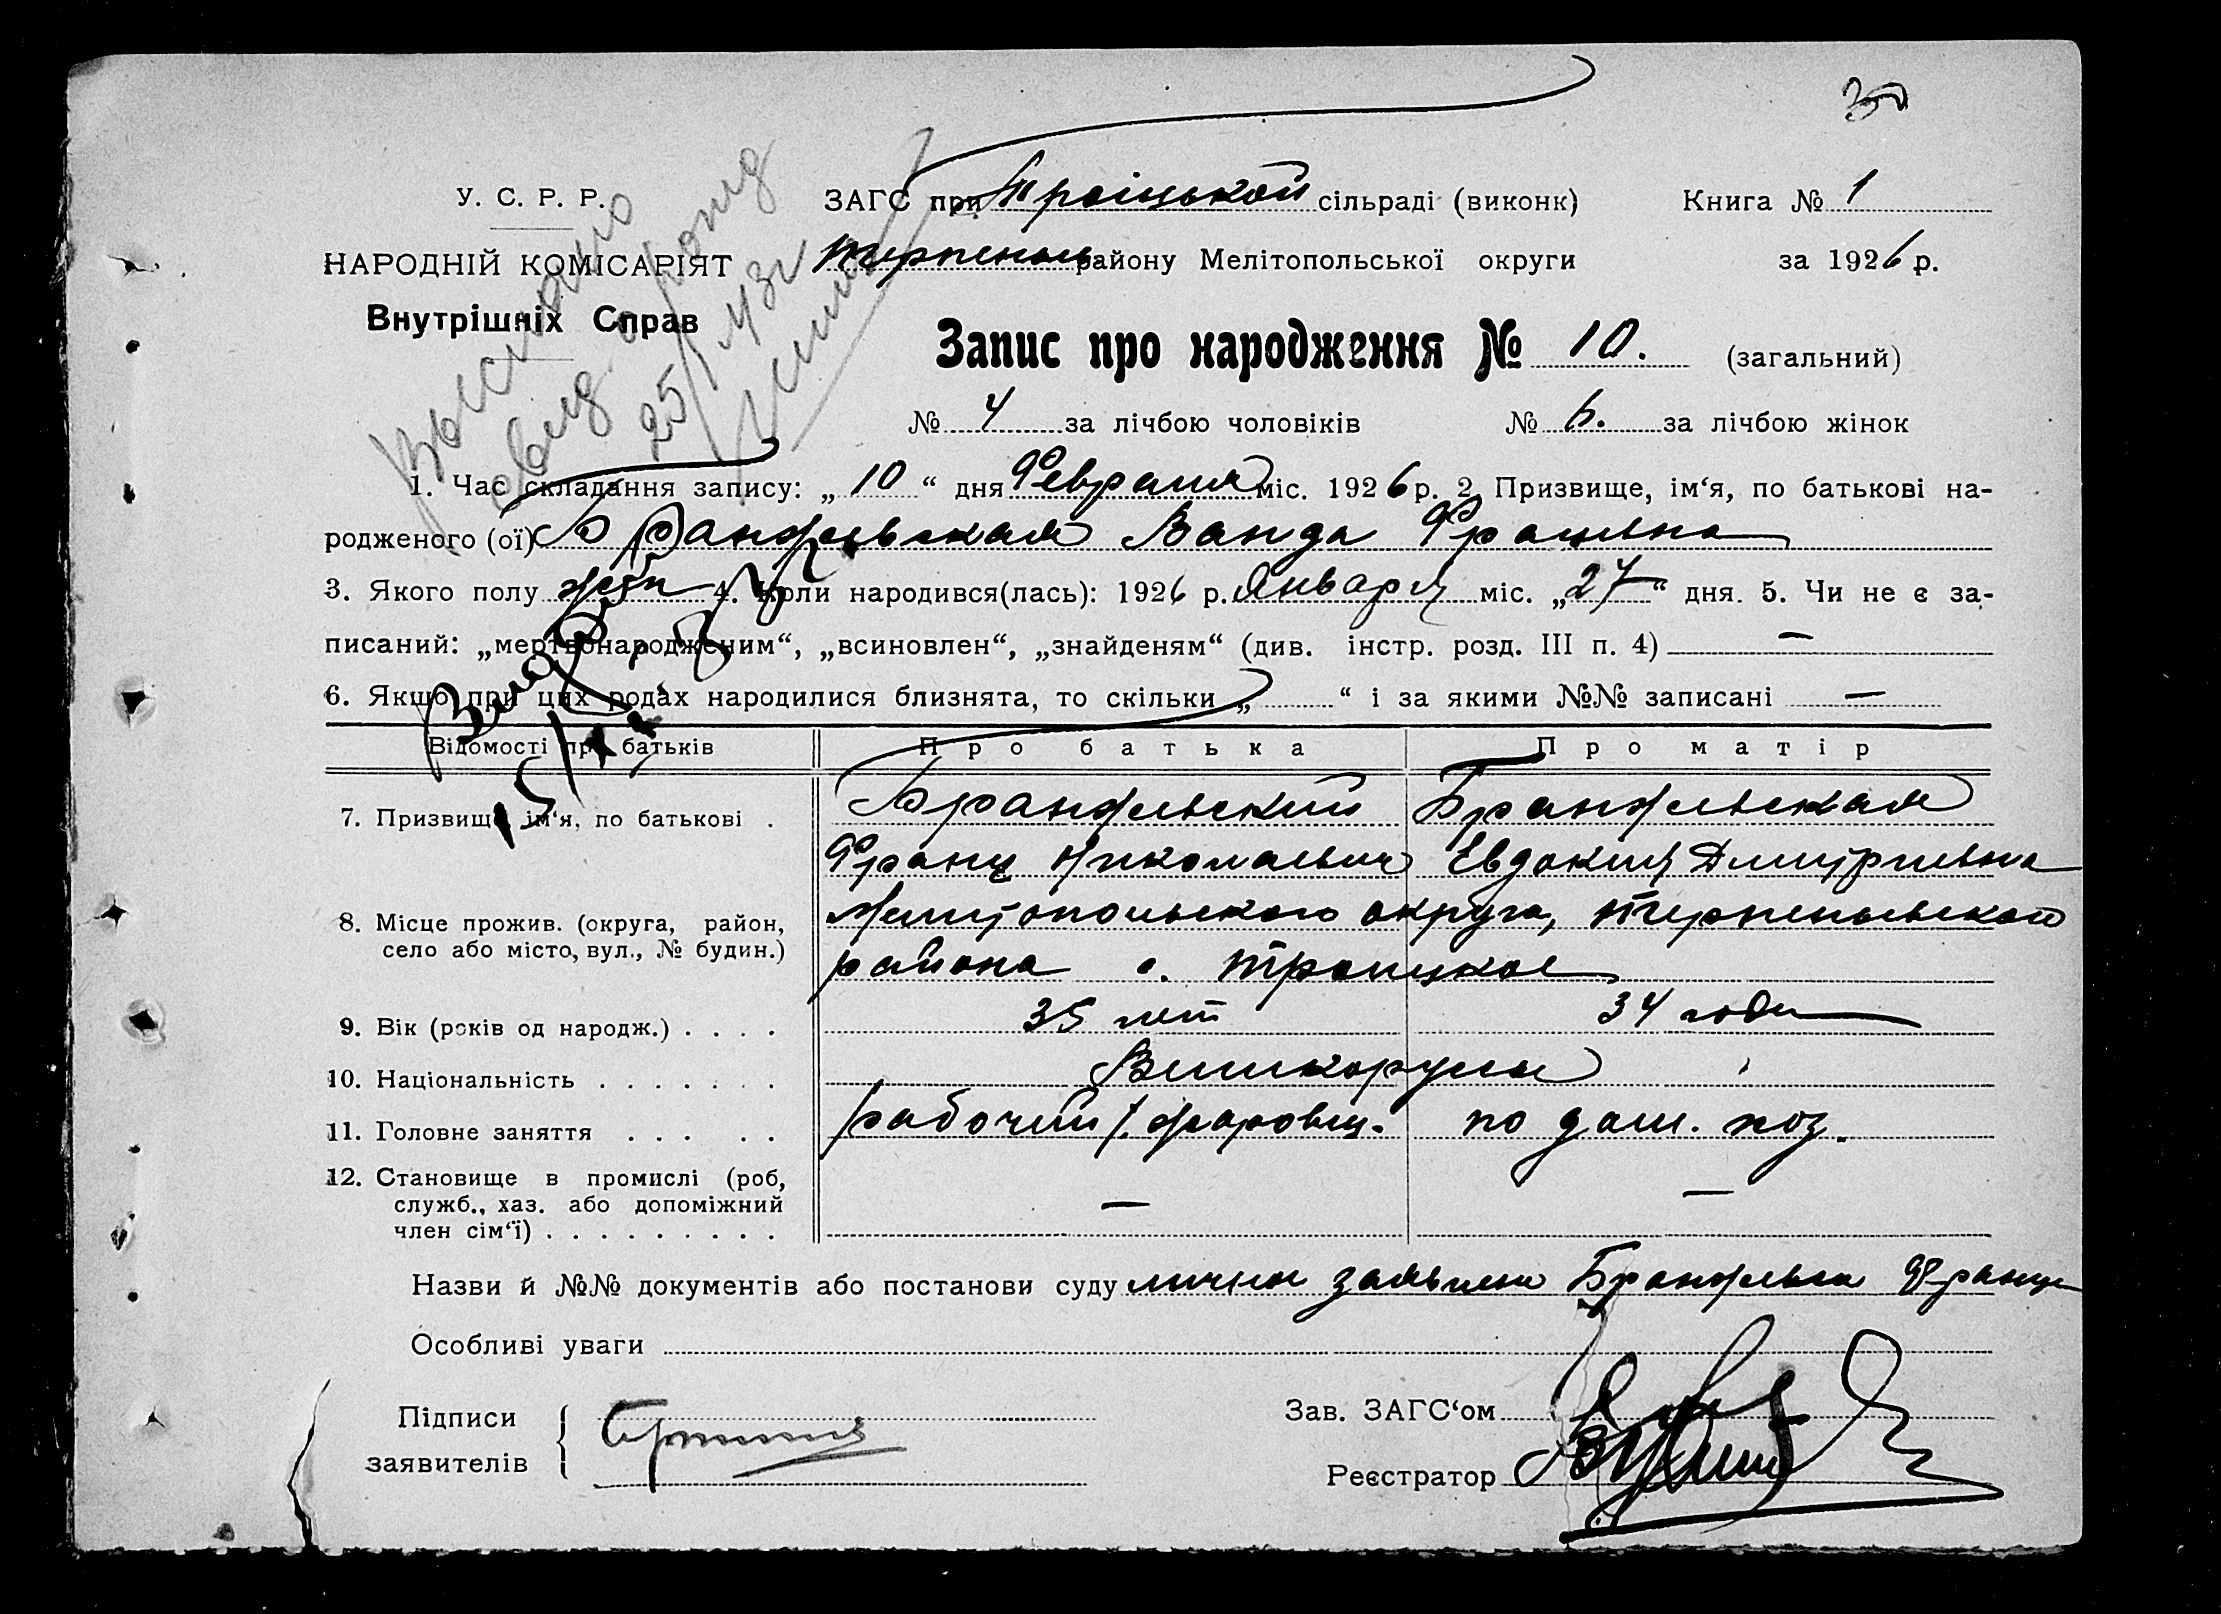 30
У. С. Р. Р.
ЗАГС при Троіцькой сільраді (виконк)
Книга № 1
НАРОДНІЙ КОМІСАРІЯТ
Терпеньев району Мелітопольської округи
за 1926 р.
Внутрішніх Справ
Запис про народження № 10. (загальний)
№ 4 за лічбою чоловіків № 6. за лічбою жінок
1. Час складання запису: „ 10 “ дня Февраля міс. 1926 р. 2. Призвище, ім‘я, по батькові на-
родженого (ої) Бранжевская Ванда Францевна
3. Якого полу жен 4. Коли народився(лась): 1926 р. Января міс. „ 27 “ дня. 5. Чи не є за-
писаний: „мертвонародженим“, „всиновлен“, „знайденям“ (див. інстр. розд. III п. 4) —
6. Якщо при цих родах народилися близнята, то скільки „ “ і за якими №№ записані —
Відомості про батьків
Про батька
Про матір
7. Призвище, ім‘я, по батькові .
Бранжевский
Бранжевская
Франц Николаевич
Евдокия Дмитриевна
8. Місце прожив. (округа, район,
село або місто, вул., № будин.)
Мелитопольского округа, Терпеньевского
района с. Троицкое
9. Вік (років од народж.) . . . .
35 лет
34 года
10. Національність . . . . . . .
Великоруссы
11. Головне заняття . . . . .
рабочий
по дом. хоз.
12. Становище в промислі (роб,
служб., хаз. або допоміжний
член сім‘ї) . . . . . . . . .
—
—
Назви й №№ документів або постанови суду личное заявление Франца
Особливі уваги
Підписи
заявителів
Зав. ЗАГС‘ом
Реєстратор